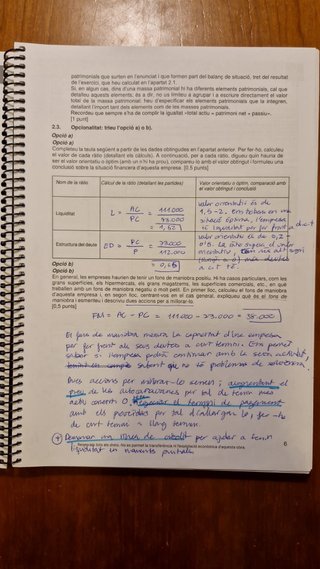 patrimonials que surten en l'enunciat i que formen part del balanç de situació, tret del resultat
de l'exercici, que heu calculat en l'apartat 2.1.
Si, en algun cas, dins d'una massa patrimonial hi ha diferents elements patrimonials, cal que
detalleu aquests elements, és a dir, no us limiteu a agrupar i a escriure directament el valor
total de la massa patrimonial: heu d'especificar els elements patrimonials que la integren,
detallant l'import tant dels elements com de les masses patrimonials.
Recordeu que sempre s'ha de complir la igualtat «total actiu = patrimoni net + passiu».
[1 punt]
2.3. Opcionalitat: trieu l'opció a) o b).
Opció a)
Opció a)
Completeu la taula següent a partir de les dades obtingudes en l'apartat anterior. Per fer-ho, calculeu
el valor de cada ràtio (detallant els càlculs). A continuació, per a cada ràtio, digueu quin hauria de
ser el valor orientatiu o òptim (amb un n'hi ha prou), compareu-lo amb el valor obtingut i formuleu una
conclusió sobre la situació financera d'aquesta empresa. [0,5 punts]
Nom de la ràtio
Càlcul de la ràtio (detallant les partides)
Valor orientatiu o òptim, comparació amb
el valor obtingut i conclusió
Liquiditat
L = AC / PC = 111.000 / 73.000 = 1,52
valor orientatiu és de
1,5-2. Em trobem en una
situació òptima, l'empresa
té liquiditat per fer front a
Estructura del deute
ED = PC / P = 73.000 / 112.000 = 0,65
valor orientatiu és de 0,2 -
0'5. La ràtio supera el valor
a c.t té.
Opció b)
Opció b)
En general, les empreses haurien de tenir un fons de maniobra positiu. Hi ha casos particulars, com les
grans superfícies, els hipermercats, els grans magatzems, les superfícies comercials, etc., en què
treballen amb un fons de maniobra negatiu o molt petit. En primer lloc, calculeu el fons de maniobra
d'aquesta empresa i, en segon lloc, centrant-vos en el cas general, expliqueu què és el fons de
maniobra i esmenteu i descriviu dues accions per a millorar-lo.
[0,5 punts]
FM = AC - PC = 111.000 - 73.000 = 38.000
El fons de maniobra mesura la capacitat d'una empresa
per fer front als seus deutes a curt termini. Ens permet
saber si l'empresa podrà continuar amb la seva activitat,
sabent que no té problemes de solvència.
Dues accions per millorar-lo serien: augmentant el
preu de les autocaravanes per tal de tenir més
actiu corrent o, renegociar el termini de pagament
amb els proveïdors per tal d'allargar-lo, fer-ho
de curt termini a llarg termini.
Demanar una línea de crèdit per ajudar a tenir
6
liquiditat en moments puntuals.